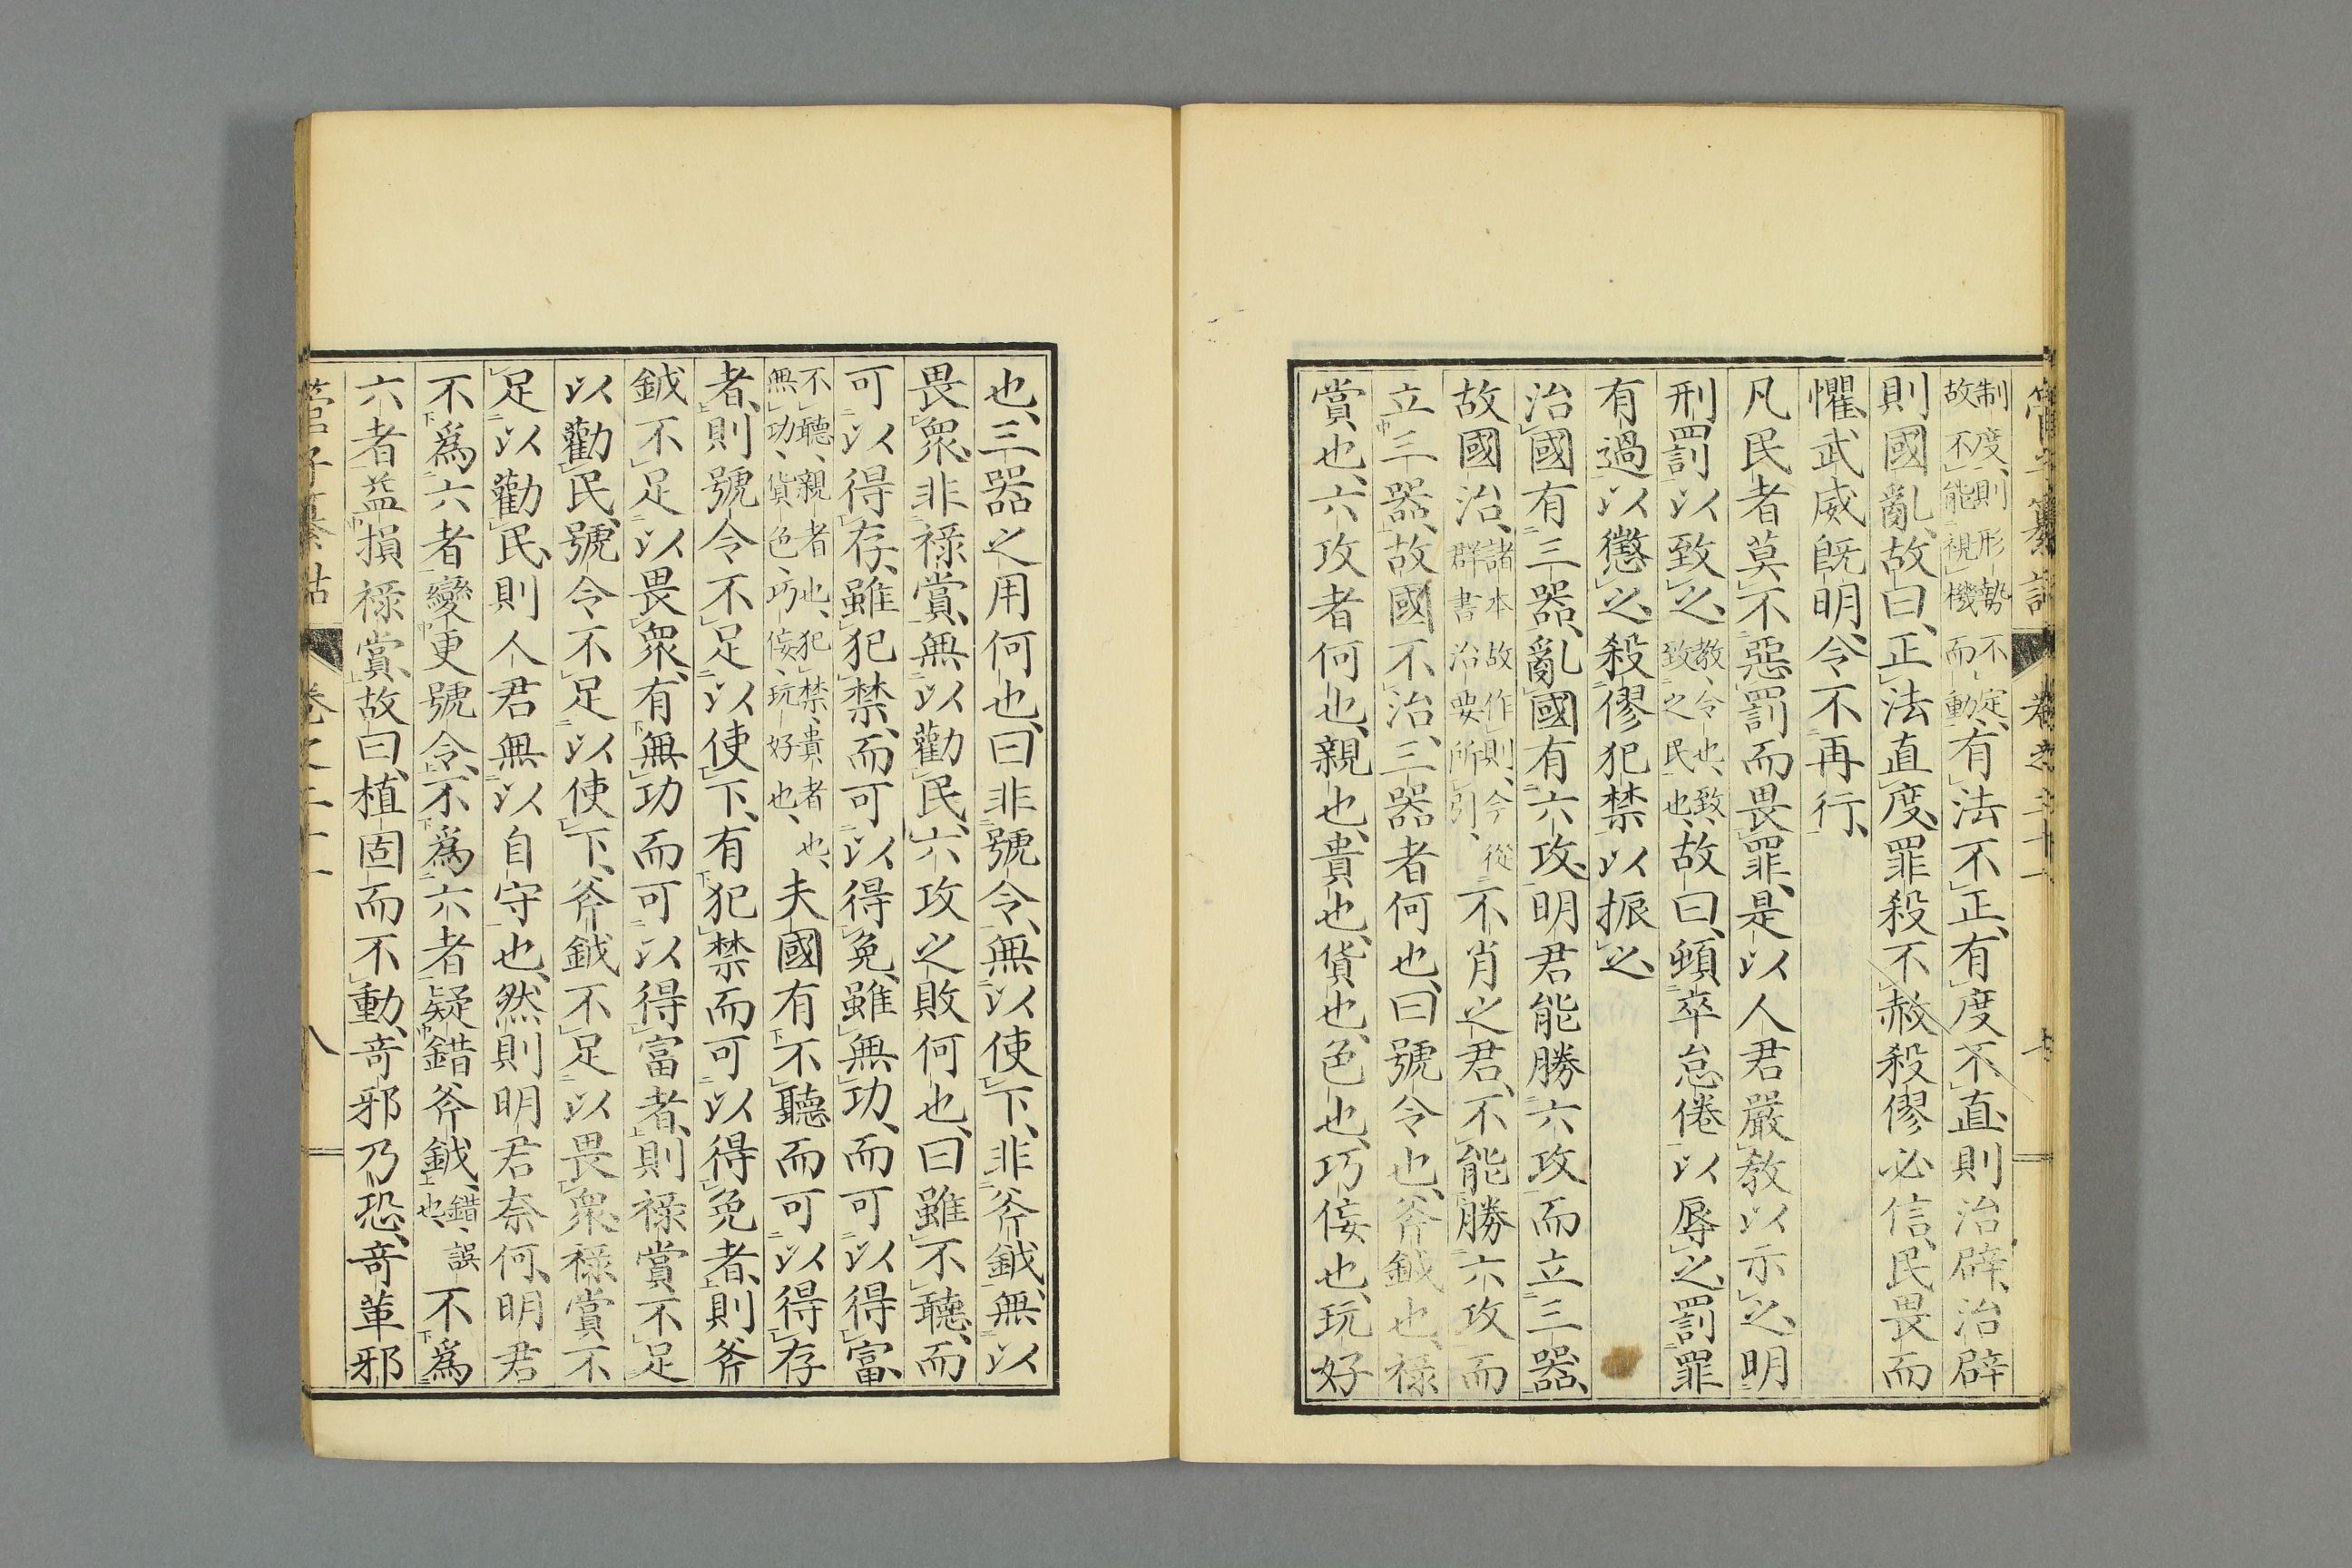 管子纂詁 卷之二十一 七
制度、則形勢不定、故不能視機而動、有法不正、有度不直、則治辟、治辟
則國亂、故曰、正法直度、罪殺不赦、殺僇必信、民畏而
懼、武威既明、令不再行、
凡民者莫不惡罰而畏罪、是以人君嚴教以示之、明
刑罰以致之、教、令也、致、致之民也、故曰、頓卒怠倦以辱之、罰罪
有過以懲之、殺僇犯禁以振之、
治國有三器、亂國有六攻、明君能勝六攻而立三器、
故國治、諸本故作則、今從群書治要所引、不肖之君、不能勝六攻而
立三器、故國不治、三器者何也、曰號令也、斧鉞也、祿
賞也、六攻者何也、親也、貴也、貨也、色也、巧佞也、玩好
也、三器之用何也、曰非號令、無以使下、非斧鉞、無以
畏衆、非祿賞、無以勸民、六攻之敗何也、曰雖不聽、而
可以得存、雖犯禁、而可以得免、雖無功、而可以得富、
不聽、親者也、犯禁、貴者也、無功、貨色、巧佞、玩好也、夫國有不聽而可以得存
者、則號令不足以使下、有犯禁而可以得免者、則斧
鉞不足以畏衆、有無功而可以得富者、則祿賞不足
以勸民、號令不足以使下、斧鉞不足以畏衆、祿賞不
足以勸民、則人君無以自守也、然則明君奈何、明君
不爲六者變更號令、不爲六者疑錯斧鉞、錯、誤也、不爲
六者益損祿賞、故曰、植固而不動、奇邪乃恐、奇革邪
管子纂詁 卷之二十一 八